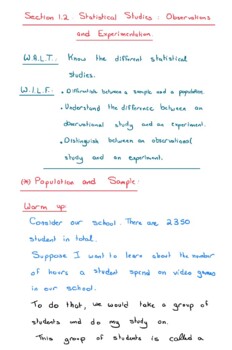 Section 1.2. Statistical Studies : Observations
and Experimentation.
W.A.L.T.: Know the different statistical
studies.
W.I.L.F.: • Differentiate between a sample and a population.
• Understand the difference between an
observational study and an experiment.
• Distinguish between an observational
study and an experiment.
(*) Population and Sample:
Warm up:
Consider our school. There are 2350
student in total.
Suppose I want to learn about the number
of hours a student spend on video games
in our school.
To do that, we would take a group of
students and do my study on.
This group of students is called a